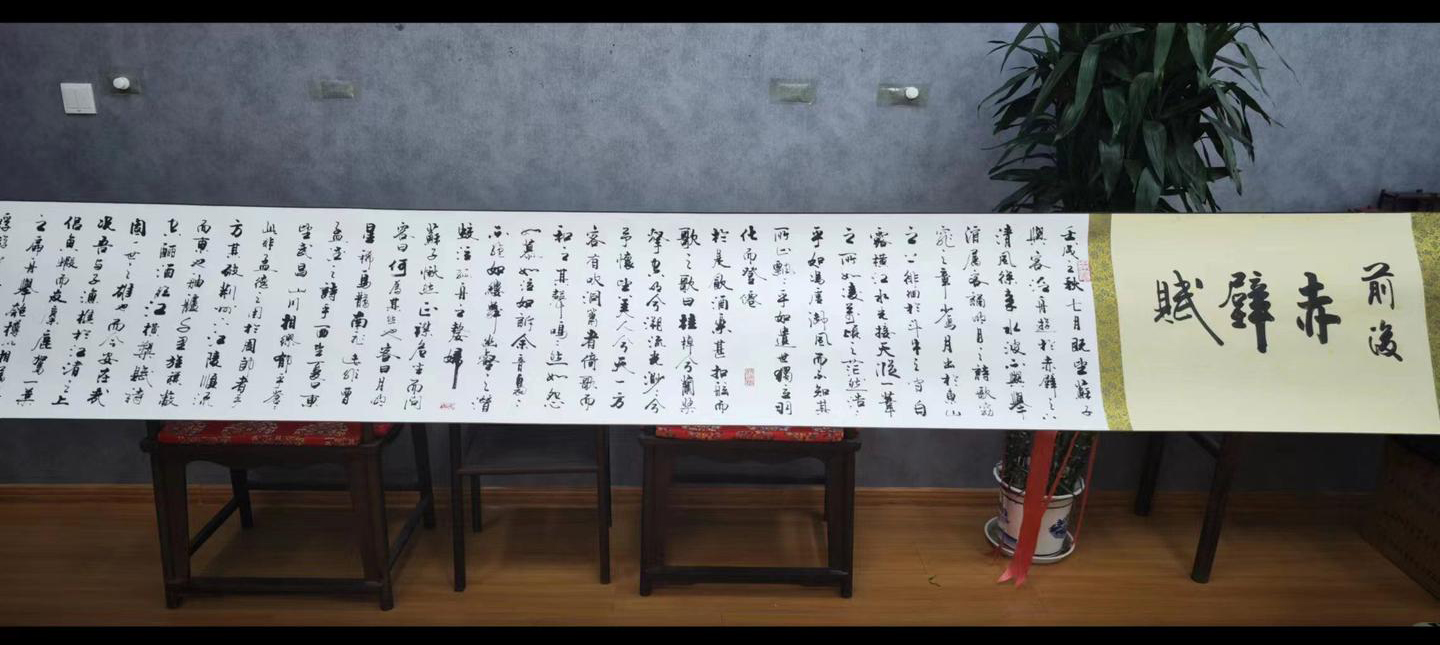 前後
赤壁賦
壬戌之秋七月既望蘇子
與客泛舟遊於赤壁之下
清風徐來水波不興舉
酒屬客誦明月之詩歌窈
窕之章少焉月出於東山
之上徘徊於斗牛之間白
露橫江水光接天縱一葦
之所如凌萬頃之茫然浩浩
乎如馮虛御風而不知其
所止飄飄乎如遺世獨立羽
化而登僊
於是飲酒樂甚扣舷而
歌之歌曰桂棹兮蘭槳
擊空明兮溯流光渺渺兮
予懷望美人兮天一方
客有吹洞簫者倚歌而
和之其聲嗚嗚然如怨
如慕如泣如訴余音裊裊
不絕如縷舞幽壑之潛
蛟泣孤舟之嫠婦
蘇子愀然正襟危坐而問
客曰何為其然也客曰月明
星稀烏鵲南飛此非曹
孟德之詩乎西望夏口東
望武昌山川相繆鬱乎蒼蒼
此非孟德之困於周郎者乎
方其破荊州下江陵順流
而東也舳艫千里旌旗蔽
空釃酒臨江橫槊賦詩
固一世之雄也而今安在哉
況吾與子漁樵於江渚之上
侶魚蝦而友麋鹿駕一葉
之扁舟舉匏樽以相屬